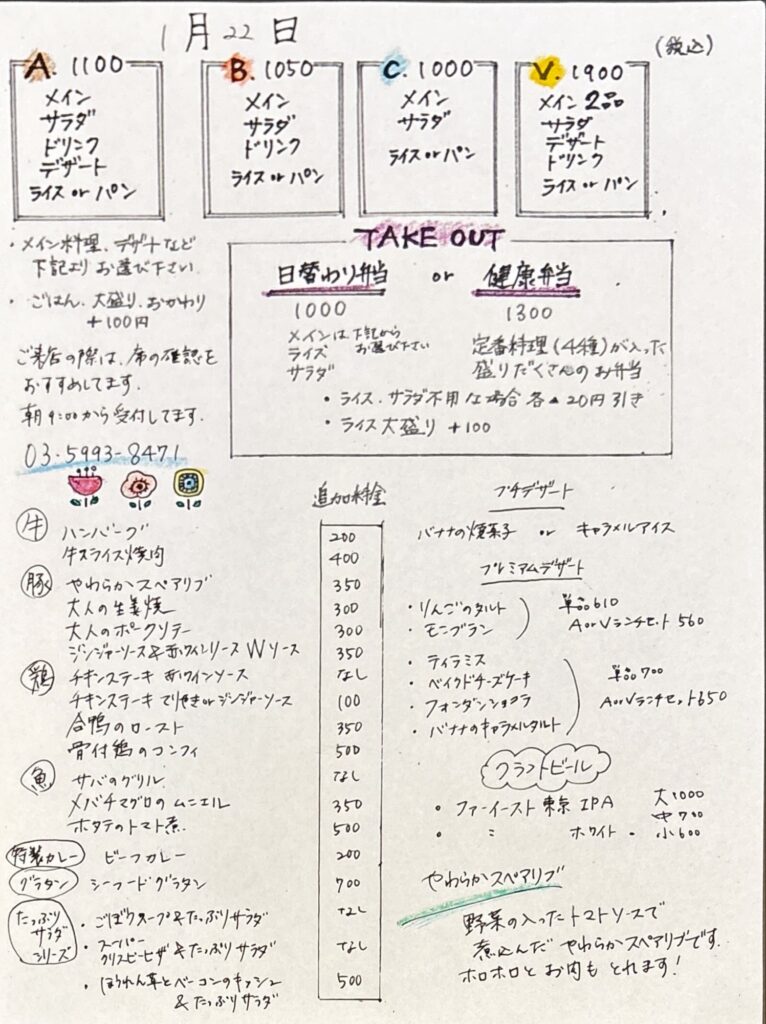 1月22日
(税込)
A. 1100
メイン
サラダ
ドリンク
デザート
ライス or パン
B. 1050
メイン
サラダ
ドリンク
ライス or パン
C. 1000
メイン
サラダ
ライス or パン
V. 1900
メイン 2品
サラダ
デザート
ドリンク
ライス or パン
・メイン料理、デザートなど
下記よりお選び下さい
・ごはん、大盛り、おかわり
+100円
ご来店の際は、席の確認を
おすすめしてます。
朝9:00から受付してます。
03-5993-8471
TAKE OUT
日替わり弁当 or 健康弁当
1000
メインは下記から
お選び下さい
ライス
サラダ
1300
定番料理(4種)が入った
盛りだくさんのお弁当
・ライス、サラダ不用な場合 各▲20円引き
・ライス大盛り +100
追加料金
牛 ハンバーグ 200
牛スライス焼肉 400
豚 やわらかスペアリブ 350
大人の生姜焼 300
大人のポークソテー 300
ジンジャーソース&赤ワインソース Wソース 350
鶏 チキンステーキ 赤ワインソース なし
チキンステーキ てりやき or ジンジャーソース 100
合鴨のロースト 350
骨付鶏のコンフィ 500
魚 サバのグリル なし
メバチマグロのムニエル 350
ホタテのトマト煮 500
特製カレー ビーフカレー 200
グラタン シーフードグラタン 700
たっぷりサラダシリーズ
・ごぼうスープ&たっぷりサラダ なし
・スーパークリスピーピザ&たっぷりサラダ なし
・ほうれん草とベーコンのキッシュ
&たっぷりサラダ 500
プチデザート
バナナの焼菓子 or キャラメルアイス
プレミアムデザート
・りんごのタルト
・モンブラン
単品610
AorVランチセット 560
・ティラミス
・ベイクドチーズケーキ
・フォンダンショコラ
・バナナのキャラメルタルト
単品700
AorVランチセット650
クラフトビール
・ファーイースト東京 IPA
・ 〃 ホワイト・
大1000
中700
小600
やわらかスペアリブ
野菜の入ったトマトソースで
煮込んだ やわらかスペアリブです。
ホロホロとお肉もとれます!